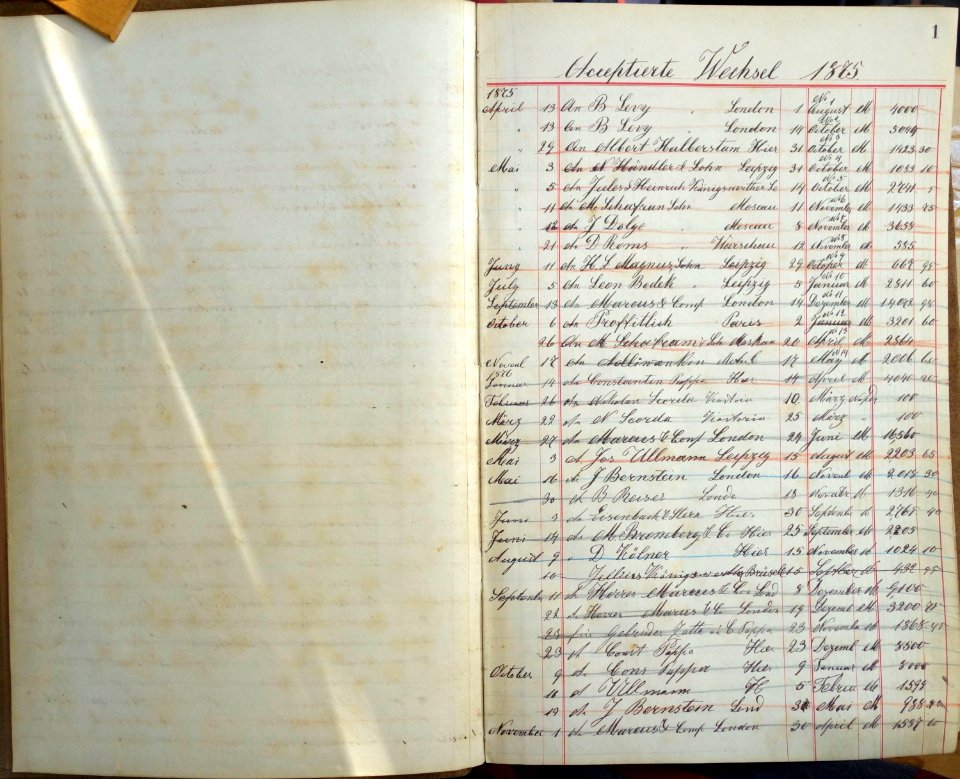 1
Acceptierte Wechsel 1875
1875
April 13 An B Levy " London 1 No 1 August M 4000
" 13 An B Levy " London 14 No 2 October M 3044
" 29 An Albert Halberstam Hier 31 No 3 October M 1423 30
Mai 3 An N Händler & Sohn Leipzig 31 No 4 October M 1053 10
" 5 An Jules & Heinrich Königswerther 14 No 5 October M 5
" 11 An M Schafran Sohn Moscau 11 No 6 November M 1433 75
" 12 An J Dolge " Moscau 8 No 7 November M 3658
" 21 An D Roms " Warschau 12 No 8 November M 535
Juny 11 An H. L Magnus Sohn Leipzig 29 No 9 October M 667 95
July 5 An Leon Bodek " Leipzig 5 No 10 Januar M 2811 60
September 13 An Marcus & Comp London 14 No 11 Dezember M 95
October 6 An Proffitlich Paris 2 No 12 Januar M 3201 60
26 An M. Schafram Moskau 26 No 13 April M 2564
17 An Adliwankin 17 No 14 May M 2006
1876
Januar 14 An Constantin Pappa Hier 14 April M 4040
Februar 26 An Nicholan Scorda 10 März 100
März 22 An N Scorda 25 März " 100
März 27 An Marcus & Comp London 29 Juni M 16560
Mai 3 A Jos Ullmann Leipzig 15 August M 2203 65
Mai 16 An J Bernstein London 16 M 2013 30
30 An B Reiser 13 M 1316 40
Juni 3 An Eisenbach & Herz Hier 30 M 2767 40
Juni 14 An M Bromberg & Co Hier 25 September M 2205
August 9 " D Kölner Hier 15 November M 1024 10
10 Julius 15 M 492 95
September 11 An Herrn Marcus & Co 8 Dezember M 9100
22 A Herren Marcus & Co London 19 Dezemb M 3200
23 für Gebrüder C Pappa 23 November M 1365
23 A Const Pappa Hier 23 Dezemb M 3500
October 9 A Cons Pappa Hier 9 Januar M 3000
10 A Ullmann H 5 M 1595
19 An J Bernstein Lond Mai M 988
November 1 An Marcus & Comp London 30 April M 1587 60